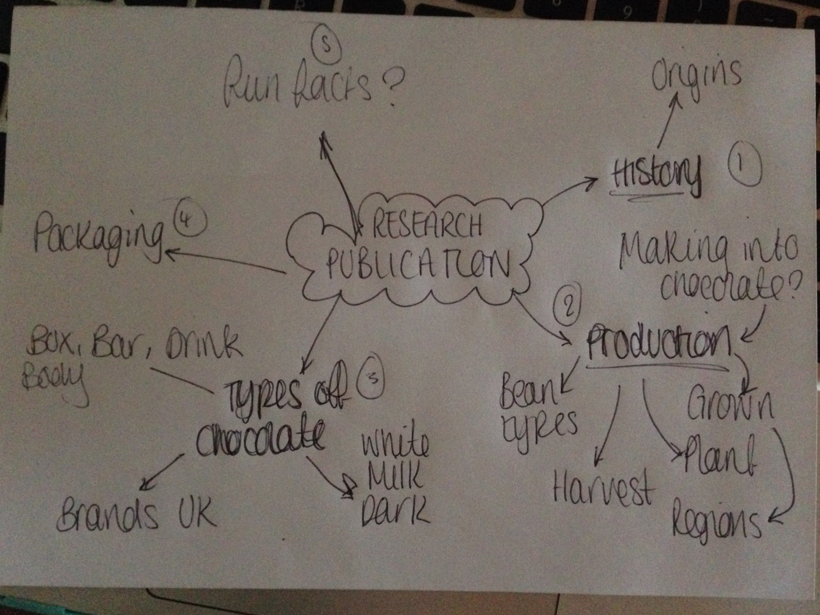 5
Fun facts?
Origins
History 1
4
Packaging
RESEARCH
PUBLICATION
Making into
chocolate?
2
Production
Box, Bar, Drink
Body
Types of 3
chocolate
White
Milk
Dark
Brands UK
Bean
types
Harvest
Grown
Plant
Regions